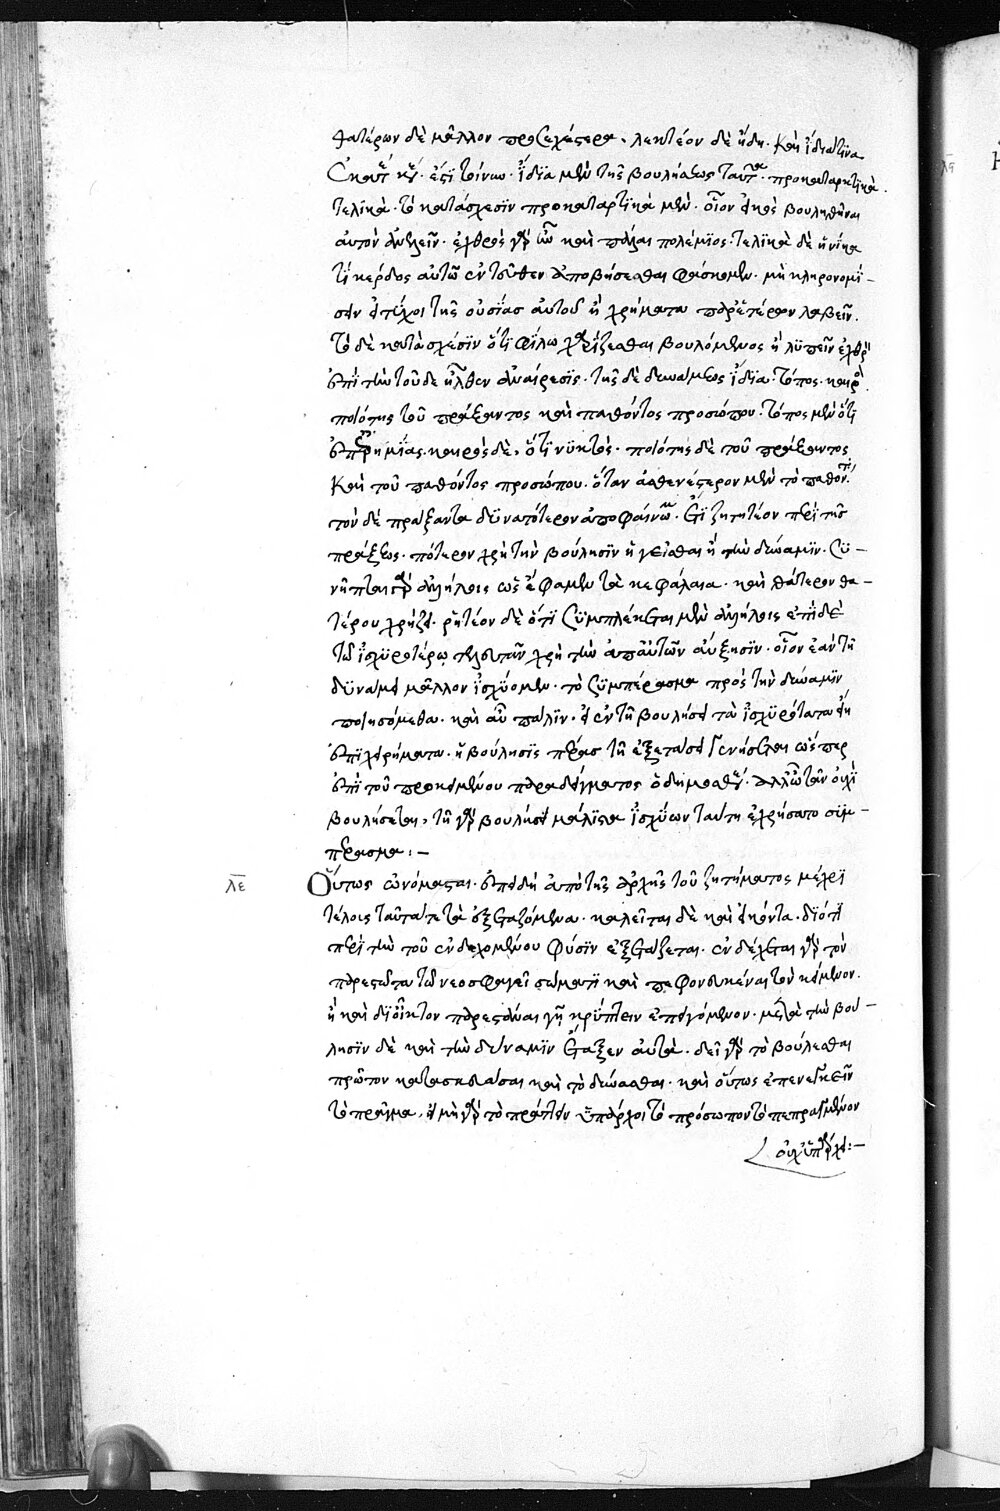 θατέρων δὲ μᾶλλον προσεχέστερα. λεκτέον δὲ ἤδη. καὶ ἰδία τίνα
ἐστὶ τοίνυν. ἴδϊα μὲν τῆς βουλήσεως ταῦτα. προκαταρκτικὰ.
τελικὰ. τὸ κατάσχεσϊν προκαταρτϊκὰ μὲν. οἷον εἰκὸς βουληθῆναι
αὐτὸν ἀνελεῖν. ἐχθρὸς γὰρ ὢν καὶ πάλαι πολέμϊος. τελϊκὰ δὲ ἡνίκα
τί κέρδος αὐτῶ ἐντεῦθεν ἀποβήσεσθαι φάσκομεν. μὴ κληρονομή-
σειν ἐτύχοι τῆς οὐσίας αὐτοῦ ἢ χρήματα παρ' ἑτέρων λαβεῖν.
τὸ δὲ κατὰ σχέσϊν ὅτϊ φίλω χαρίζεσθαι βουλόμενος ἢ λϋπεῖν ἐχθρὸν
ἐπῒ τὴν τοῦδε ἦλθεν ἀναίρεσϊς. τῆς δὲ δυνάμεως ἴδϊα. τόπος. καιρὸς.
ποιότης τοῦ πράξαντος καὶ παθόντος προσώπου. τόπος μὲν ὅτϊ
ἐπ' ἐρημίας. καιρὸς δὲ, ὅτϊ νϋκτὸς. ποιότης δὲ τοῦ πράξαντος
καὶ τοῦ παθόντος προσώπου. ὅταν ἀσθενέστερον μὲν τὸ παθὸν.
τὸν δὲ πράξαντα δϋνατώτερον ἀποφαίνω. ἔτϊ ζητητέον περὶ τῆς
πράξεως. πότερον χρὴ τὴν βούλησϊν ἡγεῖσθαι ἢ τὴν δύναμϊν. Σϋ-
νῆπται γὰρ ἀλλήλοις ὡς ἔφαμεν τὰ κεφάλαια. καὶ θάτερον θα-
τέρου χρήζει. ῥητέον δὲ ὅτϊ Σϋμπλέκεται μὲν ἀλλήλοις ἐπῒ δὲ
τῶ ἰσχϋροτέρω τελευτᾶν χρὴ τὴν ἀπ' αὐτῶν αὔξησϊν. οἷον ἐὰν τῆ
δϋνάμει μᾶλλον ἰσχϋομεν. τὸ Σϋμπέρασμα πρὸς τὴν δύναμϊν
ποιησόμεθα. καὶ αὖ πάλϊν. εἰ ἐν τῆ βουλήσει τὰ ἰσχϋρότατα εἴη
ἐπϊχειρήματα. ἡ βούλησϊς πέρας τῆ ἐξετάσει γενήσεται ὥσπερ
ἐπῒ τοῦ προκειμένου παραδείγματος ὁ δημοσθένης. ἀλλ' ὢν τἂν οὐχὶ
βουλήσεται, τῆ γὰρ βουλήσει μάλϊστα ἰσχύων ταύτη ἐχρήσατο σϋμ-
πέρασμα:-
λε Οὕτως ὠνόμασται. ἐπειδὴ ἀπὸ τῆς ἀρχῆς τοῦ ζητήματος μέχρϊ
τέλους ταῦτά τε τὰ ἐξεταζόμενα. καλεῖται δὲ καὶ εἰκότα. δϊότϊ
περὶ τὴν τοῦ ἐνδεχομένου φύσϊν ἐξετάζεται. ἐνδέχεται γὰρ τὸν
παρεστῶτα τῶ νεοσφαγεῖ σώματϊ καὶ πεφονευκέναι τὸν κείμενον.
ἢ καὶ δϊ' οἶκτον παρεστάναι γῆ κρύπτειν ἐπειγόμενον. μετὰ τὴν βού-
λησϊν δὲ καὶ τὴν δύναμϊν ἔταξεν αὐτὰ. δεῖ γὰρ τὸ βούλεσθαι
πρῶτον κατασκευάσαι καὶ τὸ δύνασθαι. καὶ οὕτως ἐπενεγκεῖν
τὸ πρᾶγμα, εἰ μὴ γὰρ τὸ πράττειν ὑπάρχοι τὸ πρόσωπον τὸ πεπραγμένον
οὐχ' ὑπάρχει:-